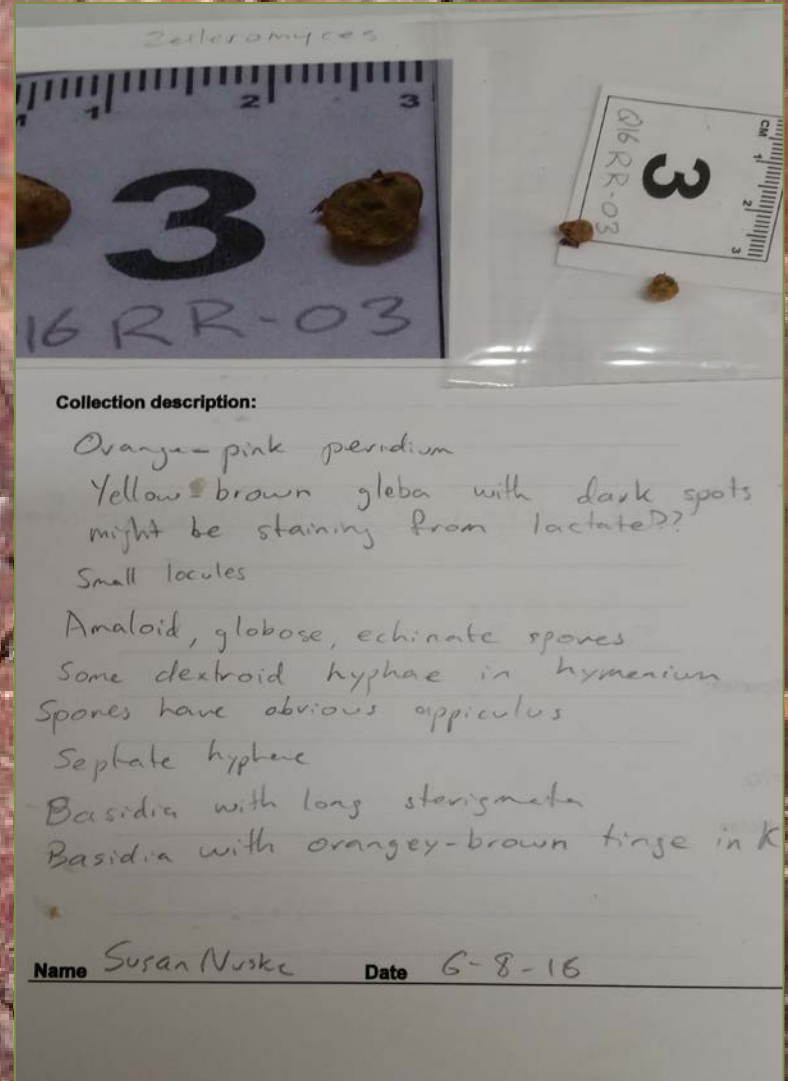 Zelleromyces
1 2 3
3
16 RR-03
Q16 RR-03
3
CM 1 2 3
Collection description:
Orange-pink peridium
Yellow-brown gleba with dark spots
might be staining from lactate??
Small locules
Amaloid, globose, echinate spores
Some dextroid hyphae in hymenium
Spores have obvious appiculus
Septate hyphae
Basidia with long sterigmata
Basidia with orangey-brown tinge in K
Name Susan Nuske Date 6-8-16